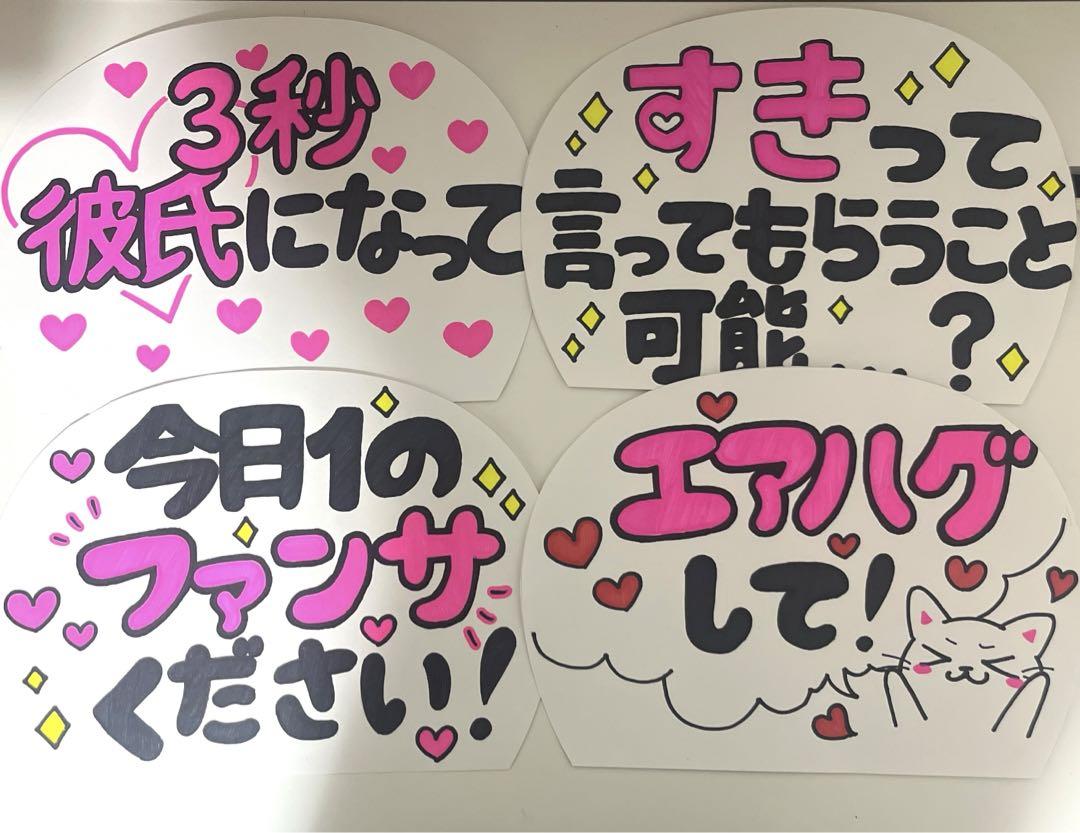 3秒
彼氏になって
すきって
言ってもらうこと
可能...?
今日1の
ファンサ
ください!
エアハグ
して!